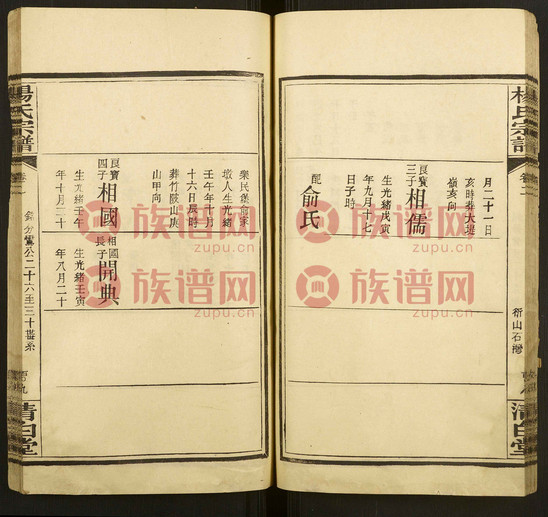 楊氏宗譜
卷二
衍山石灣
清白堂
月二十一日
亥時葬大堤
嶺亥向
良寶三子
相儒
生光緒戊寅
年九月十七
日子時
配
俞氏
壬午年十月
十六日辰時
葬竹
山甲向
良寶四子
相國
生光緒壬午
年十月二十
相國長子
開典
生光緒壬寅
年八月二十
楊氏宗譜
卷二
公二十六至三十世系
清白堂
族谱网
zupu.cn
族谱网
zupu.cn
族谱网
zupu.cn
族谱网
zupu.cn